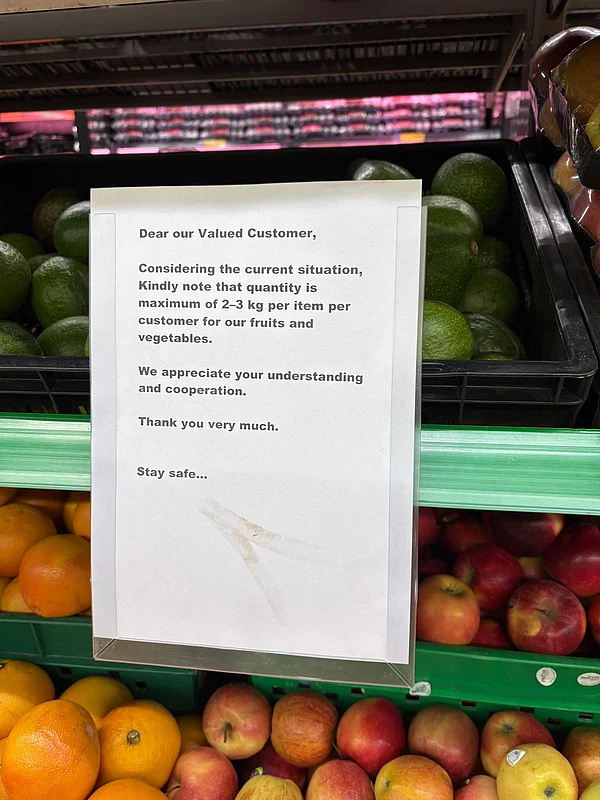 Dear our Valued Customer,
Considering the current situation,
Kindly note that quantity is
maximum of 2–3 kg per item per
customer for our fruits and
vegetables.
We appreciate your understanding
and cooperation.
Thank you very much.
Stay safe...